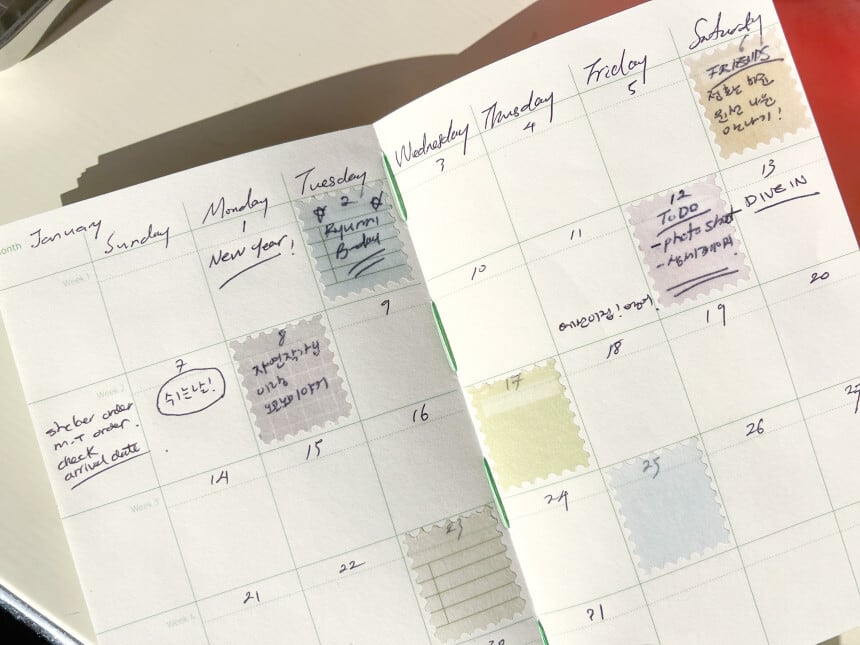 January
Sunday
Monday
Tuesday
Wednesday
Thursday
Friday
Saturday
Week 1
1
New year!
2
Ryunni
Bday
3
4
5
6
FRIENDS
만나기!
Week 2
sticker order
M.T order.
check
arrival date
7
쉬는날!
8
자연작가님
이랑
9
10
11
12
TODO
-photo shoot
13
DIVE IN
Week 3
14
15
16
17
18
19
20
Week 4
21
22
23
24
25
26
27
31